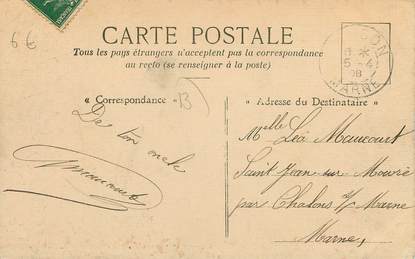 6€
CARTE POSTALE
Tous les pays étrangers n'acceptent pas la correspondance
au recto (se renseigner à la poste)
5 -4
08
MARNE
" Correspondance "
B
" Adresse du Destinataire "
De ton oncle
Melle Léa Maucourt
Saint Jean sur Moivre
par Chalons s/ Marne
Marne